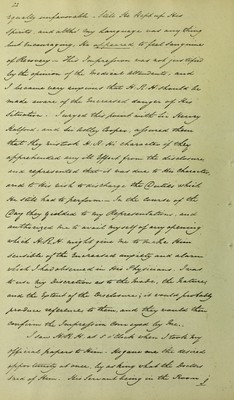 22
equally unfavorable. Still He kept up His
Spirits, and altho' my Language was any thing
but encouraging, He appeared to feel sanguine
of Recovery — This Impression was not justified
by the opinion of the Medical Attendants, and
I became very anxious that H.R.H. should be
made aware of the increased danger of His
Situation. I urged this point with Sir Henry
Halford, and Sir Astley Cooper, assured them
that they mistook H.R.H's character if they
apprehended any ill Effect from the disclosure
and represented that it was due to His Character
and to His wish to discharge the Duties which
He still had to perform — In the course of the
Day they yielded to my Representations, and
authorized me to avail myself of any opening
which H.R.H. might give me to make Him
sensible of the increased anxiety and alarm
which I had observed in His Physicians. I was
to use my Discretion as to the mode, the nature
and the Extent of the Disclosure; it would probably
produce reference to them, and they would then
confirm the Impression conveyed by me.
I saw H.R.H. at o'Clock when I took my
official papers to Him. He gave me the desired
opportunity at once, by asking what the Doctors
said of Him. His Servant being in the Room